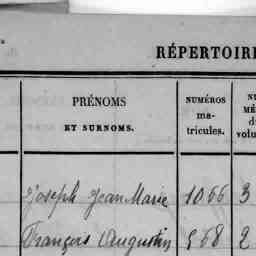 RÉPERTOIRE
PRÉNOMS
ET SURNOMS.
NUMÉROS
ma-
tricules.
Joseph Jean Marie 1066 3
François Augustin 568 2